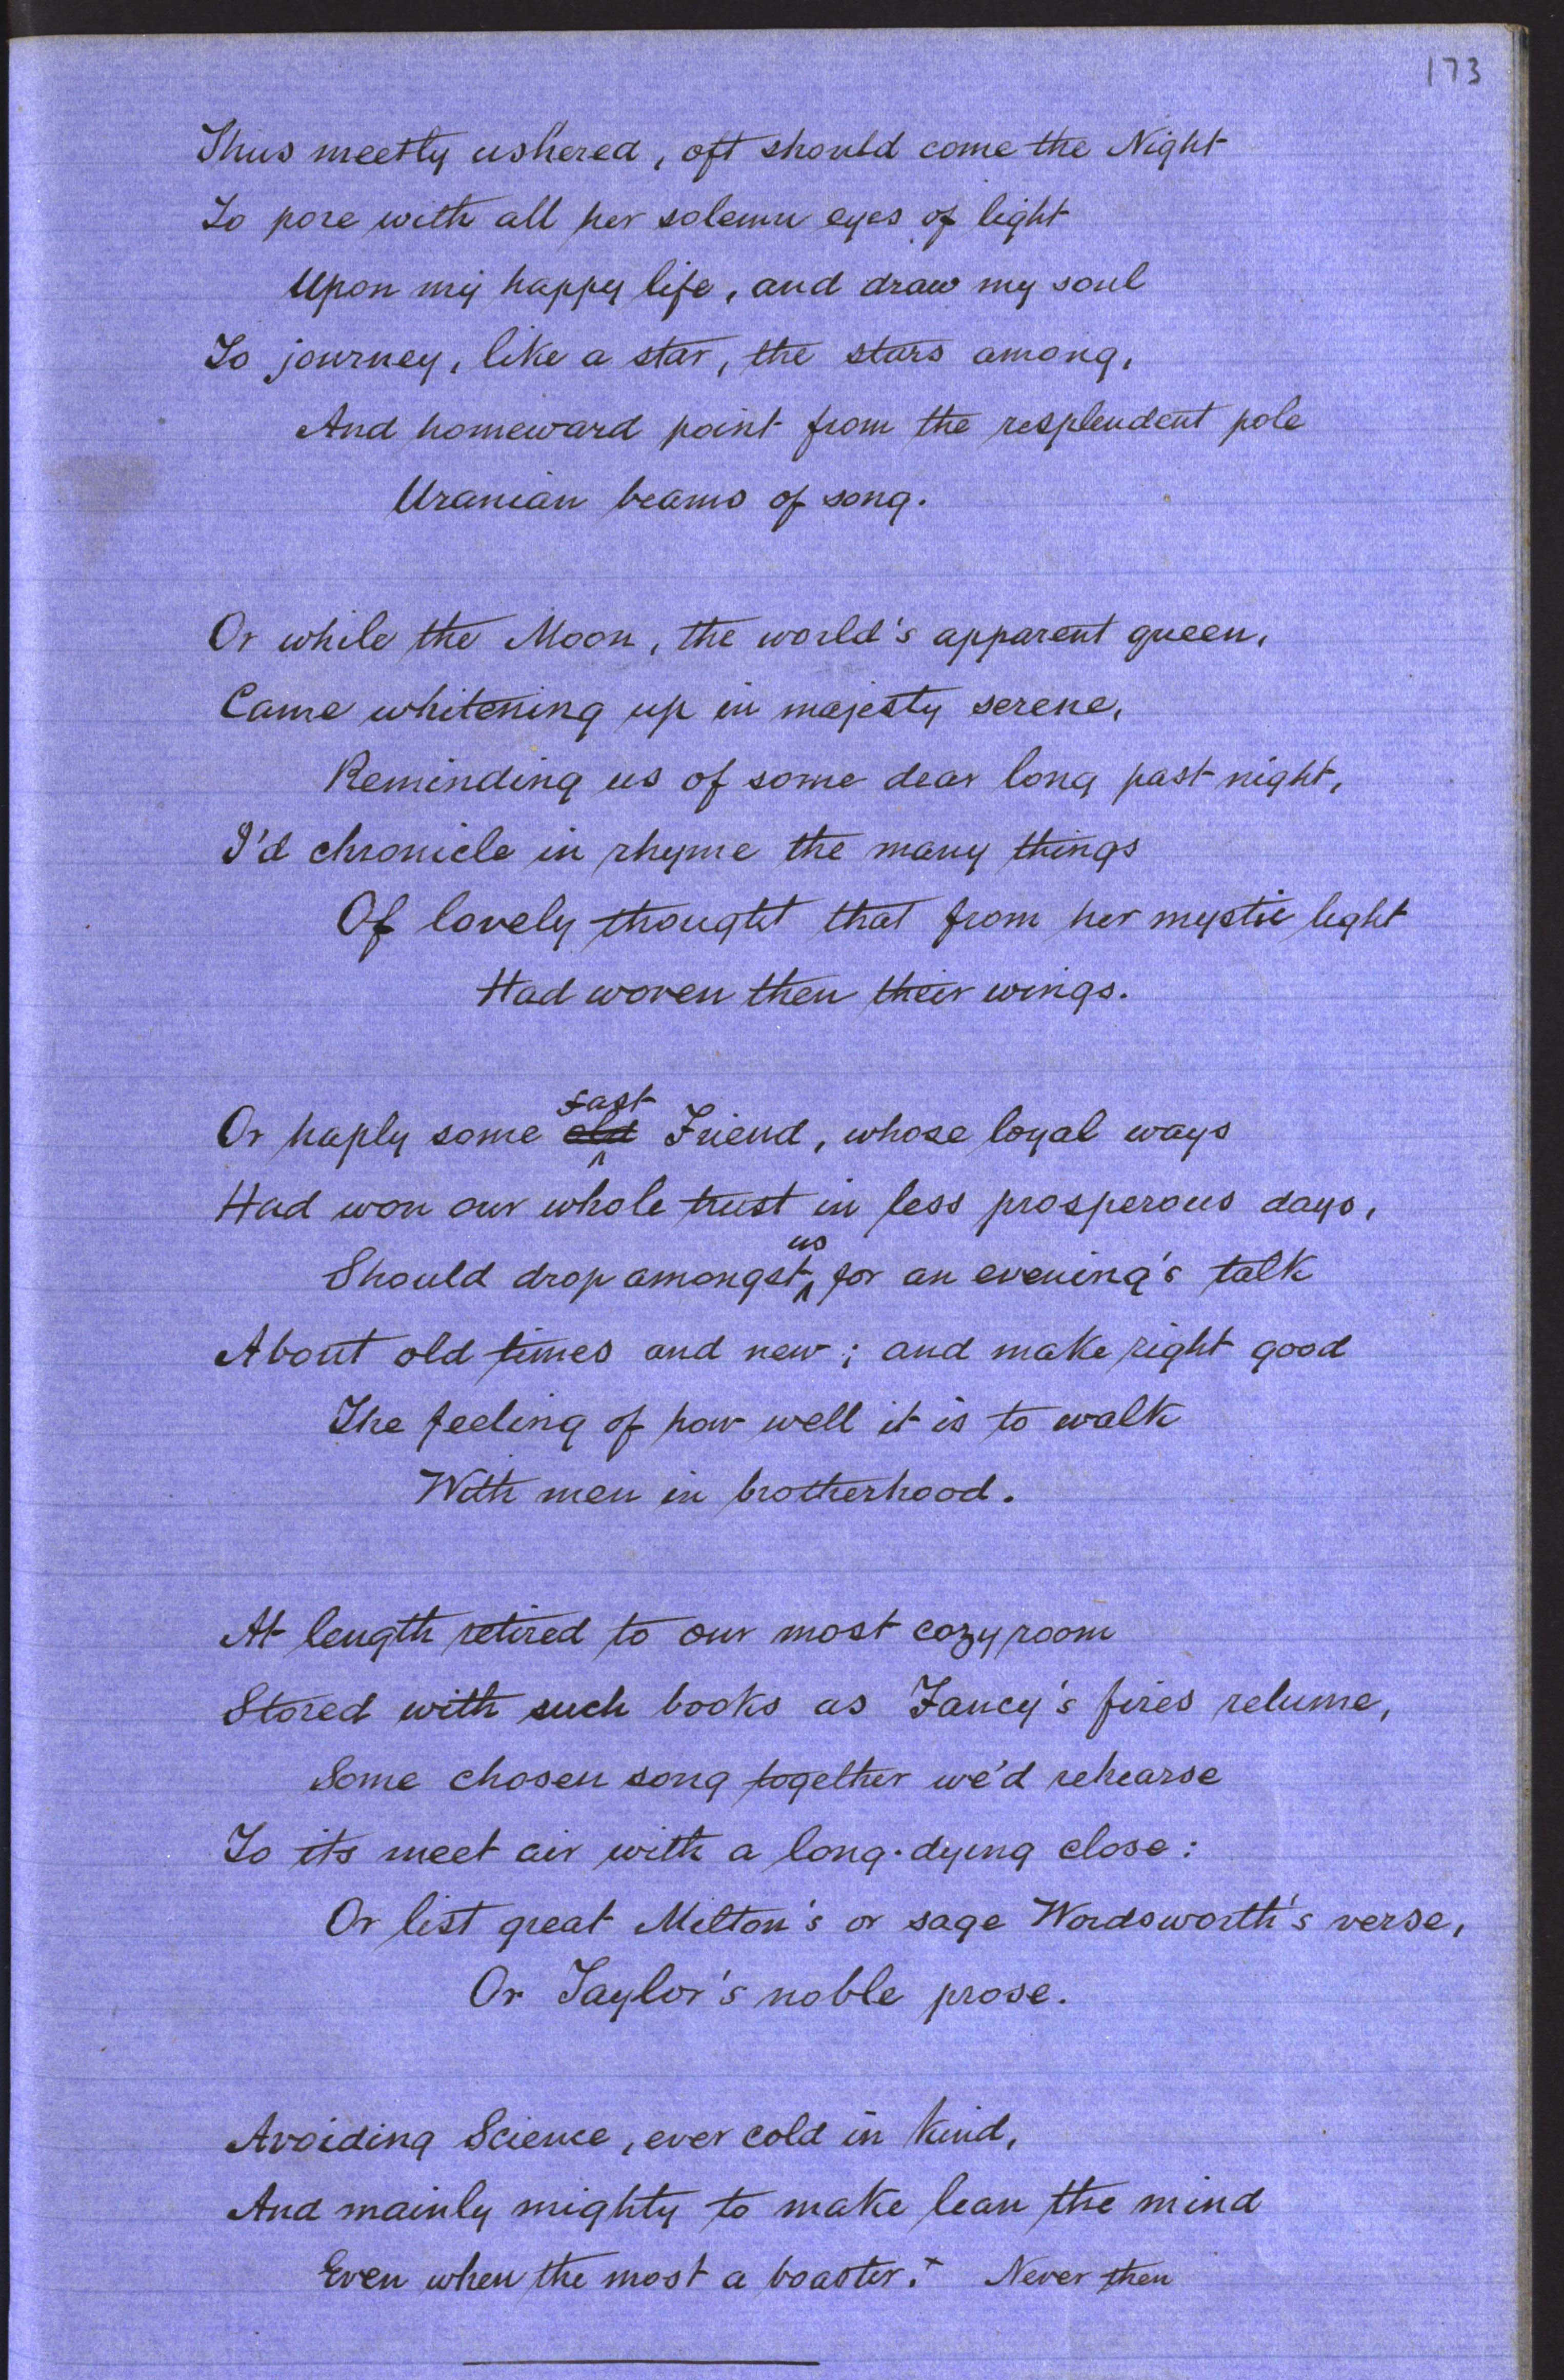 173
Thus meetly ushered, oft should come the Night
To pore with all her solemn eyes of light
Upon my happy life, and draw my soul
To journey, like a star, the stars among,
And homeward point from the resplendent pole
Uranian beams of song.
Or while the Moon, the world's apparent queen,
Came whitening up in majesty serene,
Reminding us of some dear long past night,
I'd chronicle in rhyme the many things
Of lovely thought that from her mystic light
Had woven then their wings.
fast
Or haply some old Friend, whose loyal ways
Had won our whole trust in less prosperous days,
us
Should drop amongst for an evening's talk
About old times and new; and make right good
The feeling of how well it is to walk
With men in brotherhood.
At length retired to our most cozy room
Stored with such books as Fancy's fires relume,
Some chosen song together we'd rehearse
To its meet air with a long-dying close:
Or list great Milton's or sage Wordsworth's verse,
Or Taylor's noble prose.
Avoiding Science, ever cold in kind,
And mainly mighty to make lean the mind
Even when the most a boaster.+ Never then